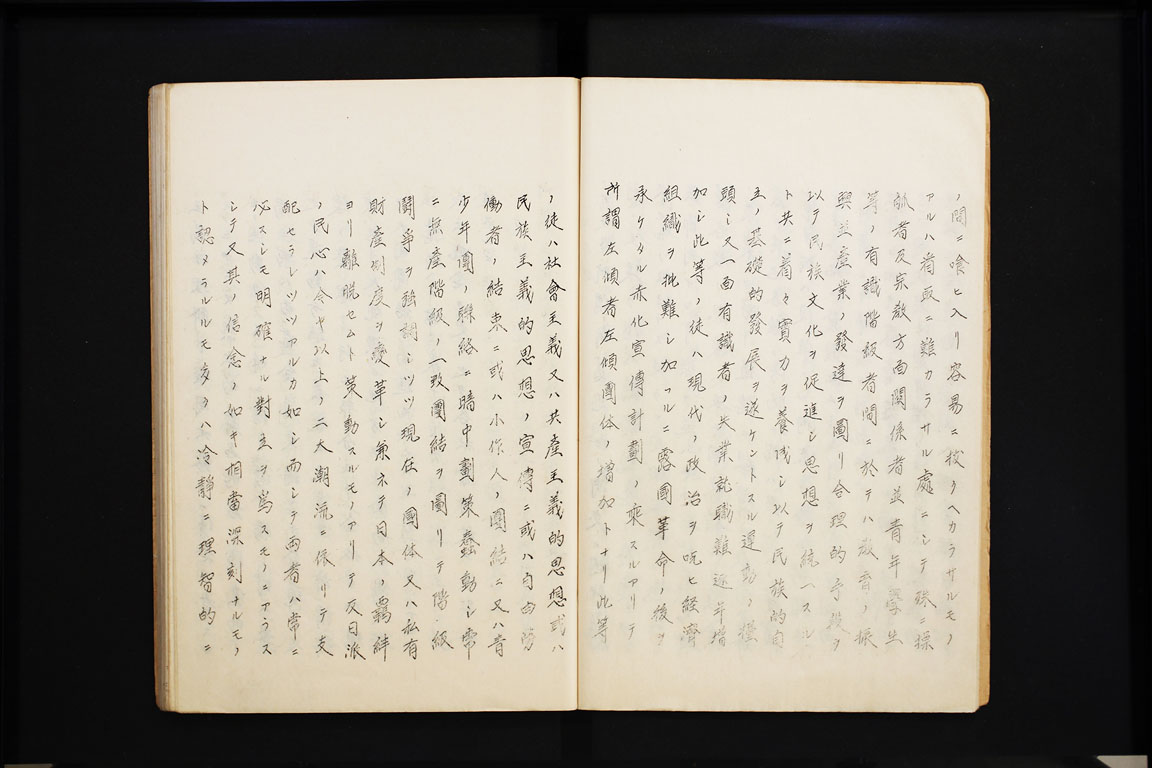 ノ間ニ喰ヒ入リ容易ニ拔クヘカラサルモノ
アルハ看取ニ難カラサル處ニシテ殊ニ操
觚者及宗敎方面關係者並青年學生
等ノ有識階級者間ニ於テハ敎育ノ振
興並産業ノ發達ヲ圖リ合理的手段ヲ
以テ民族文化ヲ促進シ思想ヲ統一スル
ト共ニ着々實力ヲ養成シ以テ民族的自
立ノ基礎的發展ヲ遂ケントスル運動ノ擡
頭シ又一面有識者ノ失業就職難逐年增
加シ此等ノ徒ハ現代ノ政治ヲ呪ヒ経濟
組織ヲ批難シ加フルニ露國革命ノ後ヲ
承ケタル赤化宣傳計劃ノ乘スルアリテ
所謂左傾者左傾團体ノ增加トナリ此等
ノ徒ハ社會主義又ハ共産主義的思想或ハ
民族主義的思想ノ宣傳ニ或ハ自由勞
働者ノ結束ニ或ハ小作人ノ團結ニ又ハ青
少年團ノ聯絡ニ暗中劃策蠢動シ常
ニ無産階級ノ一致團結ヲ圖リテ階級
鬪爭ヲ强調シツツ現在ノ國体又ハ私有
財産制度ヲ變革シ兼ネテ日本ノ羈絆
ヨリ離脱セムト策動スルモノアリテ反日派
ノ民心ハ今ヤ以上ノ二大潮流ニ依リテ支
配セラレツツアルカ如シ而シテ両者ハ常ニ
必スシモ明確ナル對立ヲ爲スモノニアラス
シテ又其ノ信念ノ如キ相當深刻ナルモノ
ト認メラルルモ多クハ冷靜ニ理智的ニ